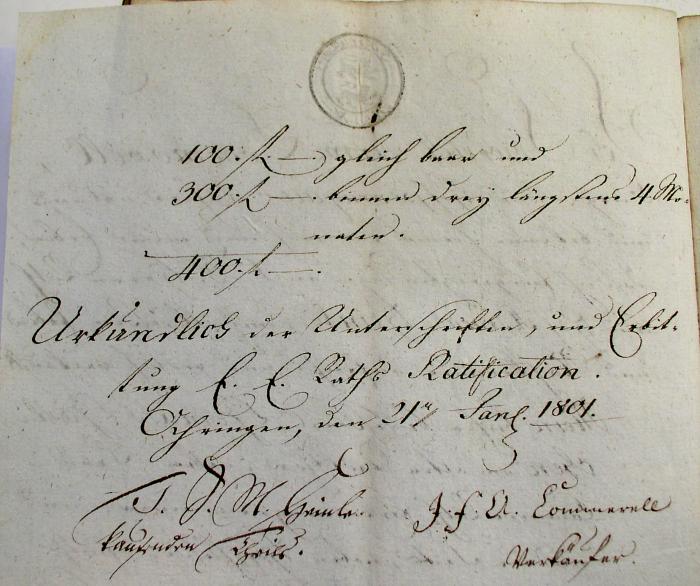 100. f. —. gleich baar und
300. f. —. binnen drey längstens 4 Mo-
naten.
400. f. —.
Urkundlich der Unterschriften, und Erbit-
tung E. E. Raths Ratification.
Oehringen, den 21n Janr. 1801.
T. J. M. Heinle J. F. A. Commerell
kaufenden Theils. Verkäufer.